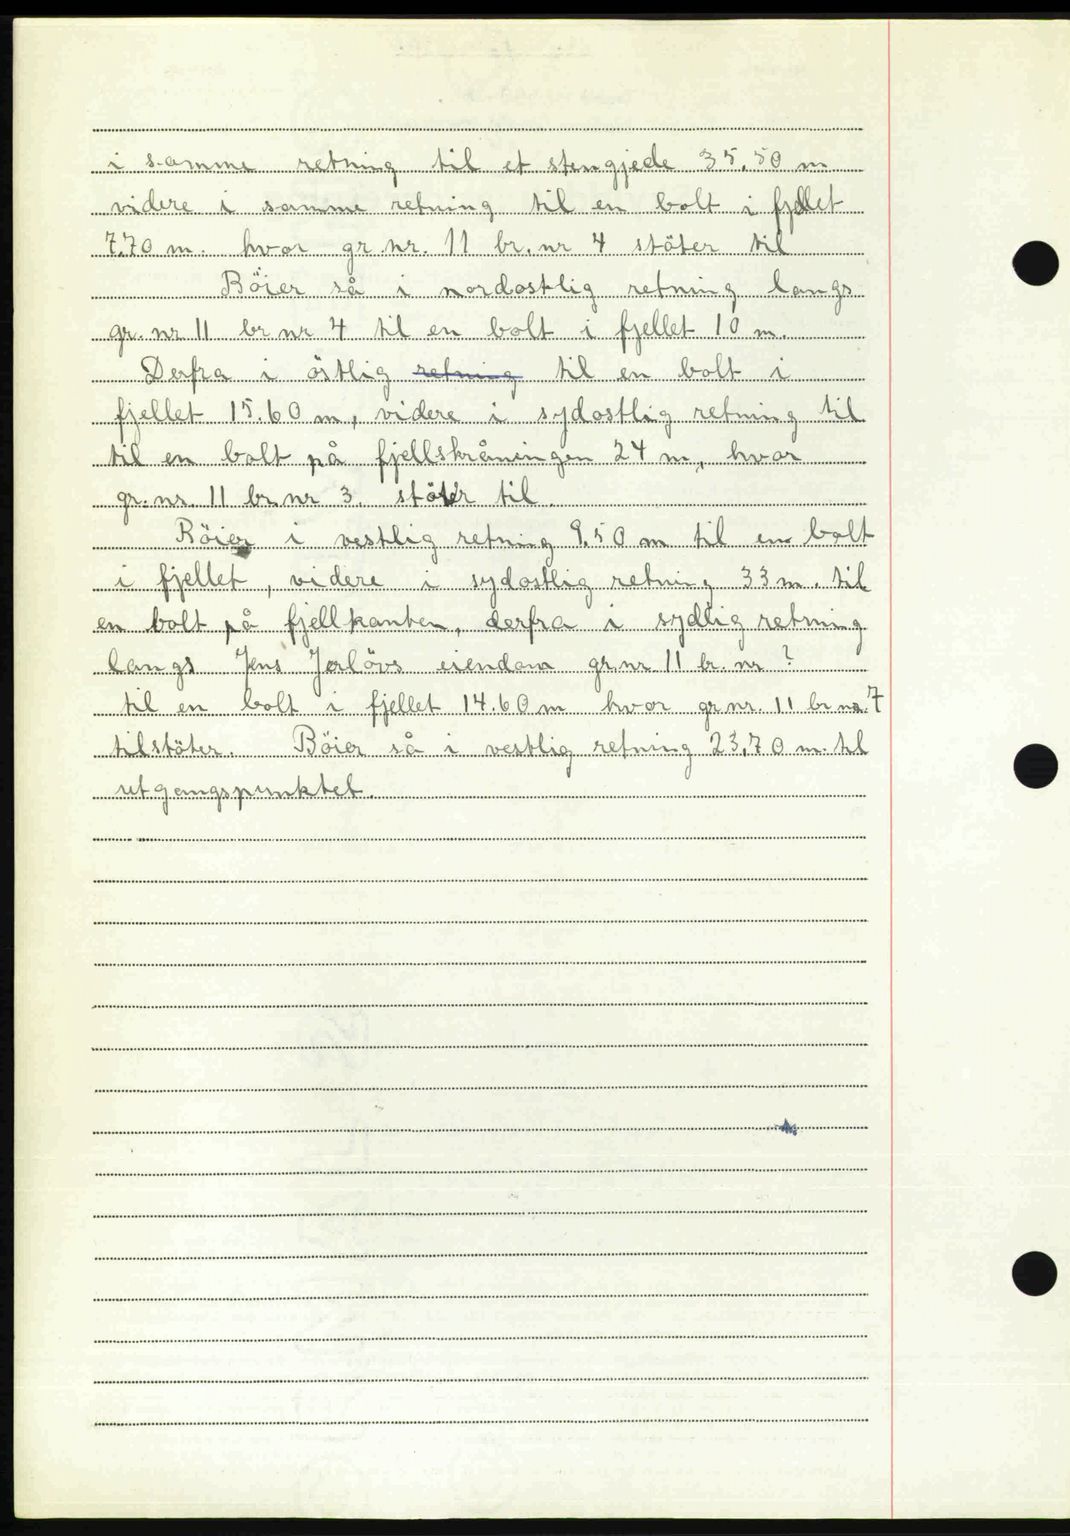 i samme retning til et stengjede 35,50 m
videre i samme retning til en bolt i fjellet
7.70 m. hvor gr.nr. 11 br.nr 4 stöter til
Böier så i nordostlig retning langs
gr.nr 11 br.nr. 4 til en bolt i fjellet 10 m.
Derfra i östlig retning til en bolt i
fjellet 15.60 m, videre i sydostlig retning til
til en bolt på fjellskråningen 24 m, hvor
gr.nr. 11 br.nr 3. stöter til.
Böier i vestlig retning 9.50 m til en bolt
i fjellet, videre i sydostlig retning 33 m. til
en bolt på fjellkanten, derfra i sydlig retning
langs Jens Jerlövs eiendom gr.nr 11 br. nr ?
til en bolt i fjellet 14.60 m hvor gr.nr. 11 br nr. 7
tilstöter. Böier så i vestlig retning 23,70 m. til
utgangspunktet.